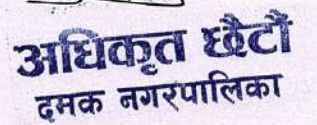 अधिकृत छैटौँ
दमक नगरपालिका